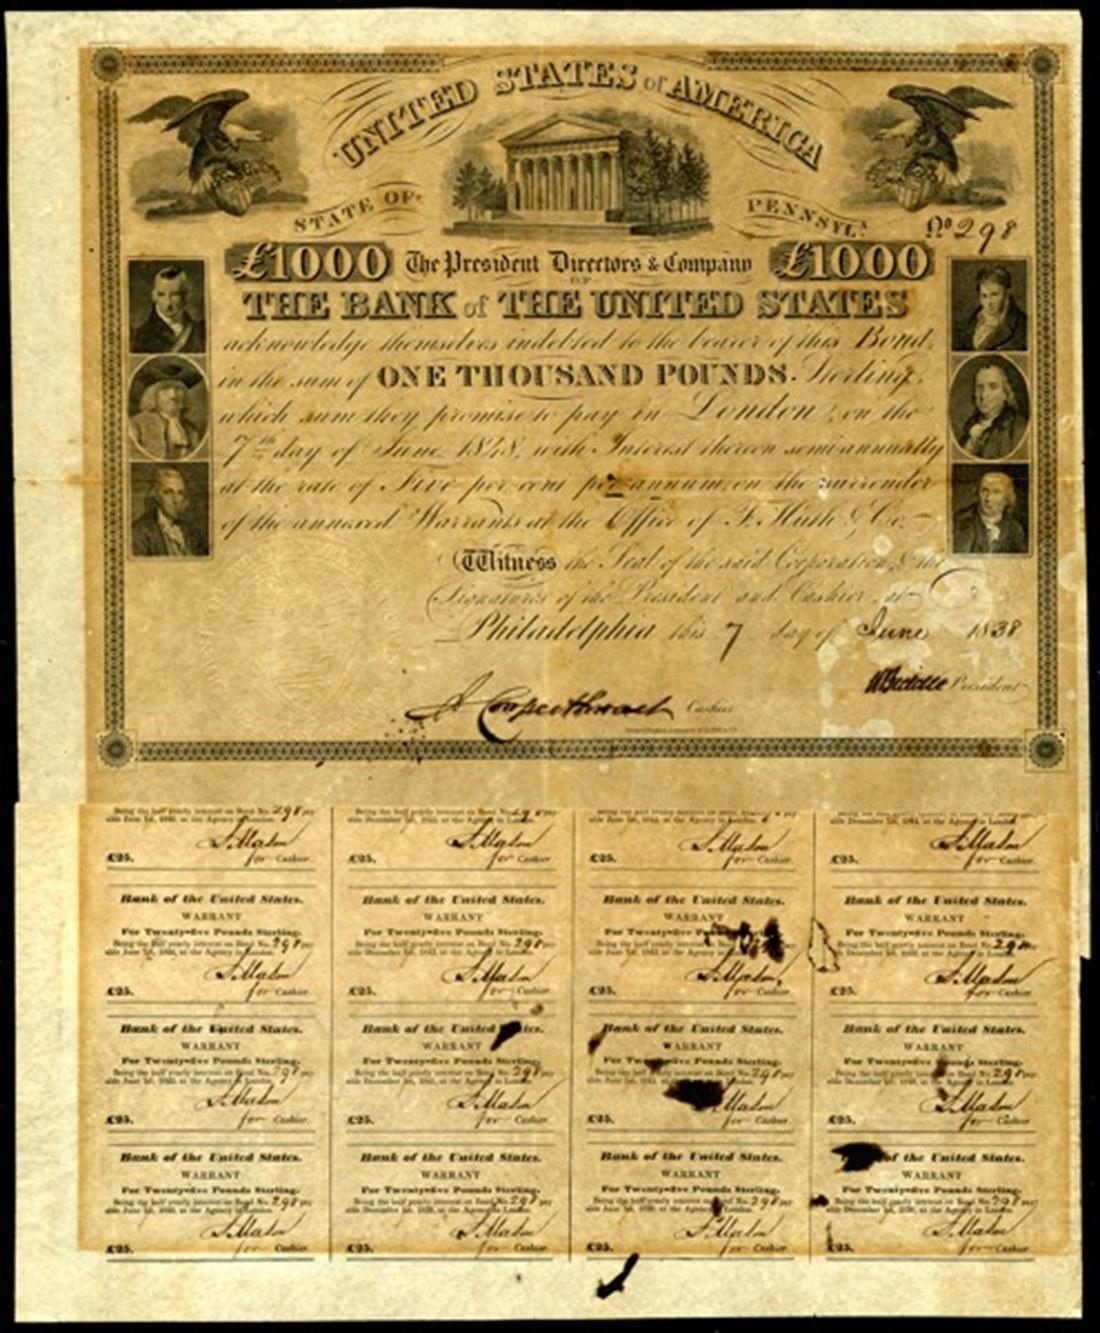 UNITED STATES of AMERICA
STATE OF PENNSYLA.
No 298
£1000 The President Directors & Company £1000
OF
THE BANK of THE UNITED STATES
acknowledge themselves indebted to the bearer of this Bond,
in the sum of ONE THOUSAND POUNDS. Sterling,
which sum they promise to pay in London, on the
7th day of June 1848, with Interest thereon semiannually
at the rate of Five per cent per annum, on the surrender
of the annexed Warrants at the Office of F. Huth & Co.
Witness the Seal of the said Corporation, & the
Signatures of the President and Cashier, at
Philadelphia this 7 day of June 1838
N Biddle President
J Cowperthwait Cashier
Being the half yearly interest on Bond No. 298 pay Being the half yearly interest on Bond No. 298 Being the half yearly interest on Bond No. Being the half yearly interest on Bond No.
able June 1st, at the Agency in London. able December 1st, at the Agency in London. able June 1st, at the Agency in London. able December 1st, at the Agency in London.
S. Mason S. Mason S. Mason S. Mason
£25. for Cashier. £25. for Cashier. £25. for Cashier. £25. for Cashier.
Bank of the United States. Bank of the United States. Bank of the United States. Bank of the United States.
WARRANT WARRANT WARRANT WARRANT
For Twenty-five Pounds Sterling. For Twenty-five Pounds Sterling. For Sterling. For Twenty-five Pounds Sterling.
Being the half yearly interest on Bond No. 298 pay Being the half yearly interest on Bond No. 298 pay Being the half yearly interest on Bond No. Being the half yearly interest on Bond No. 298
able June 1st, at the Agency in London. able December 1st, at the Agency in London. able June 1st, at the Agency in London. able December 1st, at the Agency in London.
S. Mason S. Mason S. Mason S. Mason
£25. for Cashier. £25. for Cashier. £25. for Cashier. £25. for Cashier.
Bank of the United States. Bank of the United States. Bank of the United States. Bank of the United States.
WARRANT WARRANT WARRANT WARRANT
For Twenty-five Pounds Sterling. For Twenty-five Pounds Sterling. For Twenty-five Pounds Sterling. For Twenty-five Pounds Sterling.
Being the half yearly interest on Bond No. 298 pay Being the half yearly interest on Bond No. 298 pay Being the half yearly interest on Bond No. 298 pay Being the half yearly interest on Bond No. 298 pay
able June 1st, at the Agency in London. able December 1st, at the Agency in London. able June 1st, at the Agency in London. able December 1st, at the Agency in London.
S. Mason S. Mason Mason S. Mason
£25. for Cashier £25. for Cashier. £25. for Cashier. £25. for Cashier.
Bank of the United States. Bank of the United States. Bank of the United States. of the United States.
WARRANT WARRANT WARRANT WARRANT
For Twenty-five Pounds Sterling. For Twenty-five Pounds Sterling. For Twenty-five Pounds Sterling. For Twenty-five Pounds Sterling.
Being the half yearly interest on Bond No. 298 pay Being the half yearly interest on Bond No. 298 pay Being the half yearly interest on Bond No. 298 pay Being the half yearly interest on Bond No. 298 pay
able June 1st, at the Agency in London. able December 1st, at the Agency in London. able June 1st, at the Agency in London. able December 1st, at the Agency in London.
S. Mason S. Mason S. Mason S. Mason
£25. for Cashier £25. for Cashier £25. for Cashier £25. for Cashier